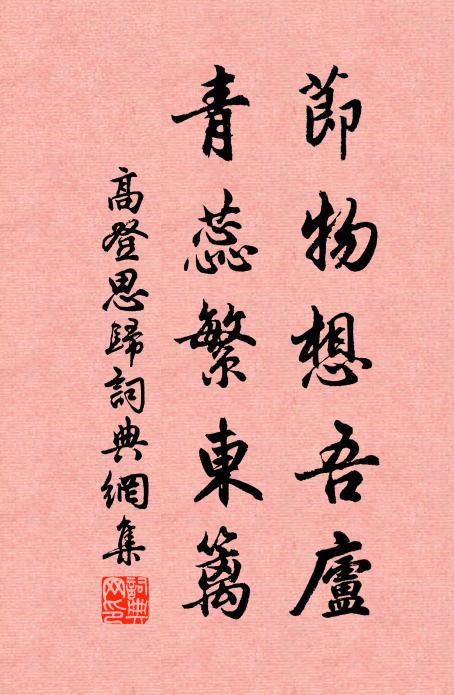 節物想吾廬
青蕊繁東篱
高登思歸詞典網集
詞典網印